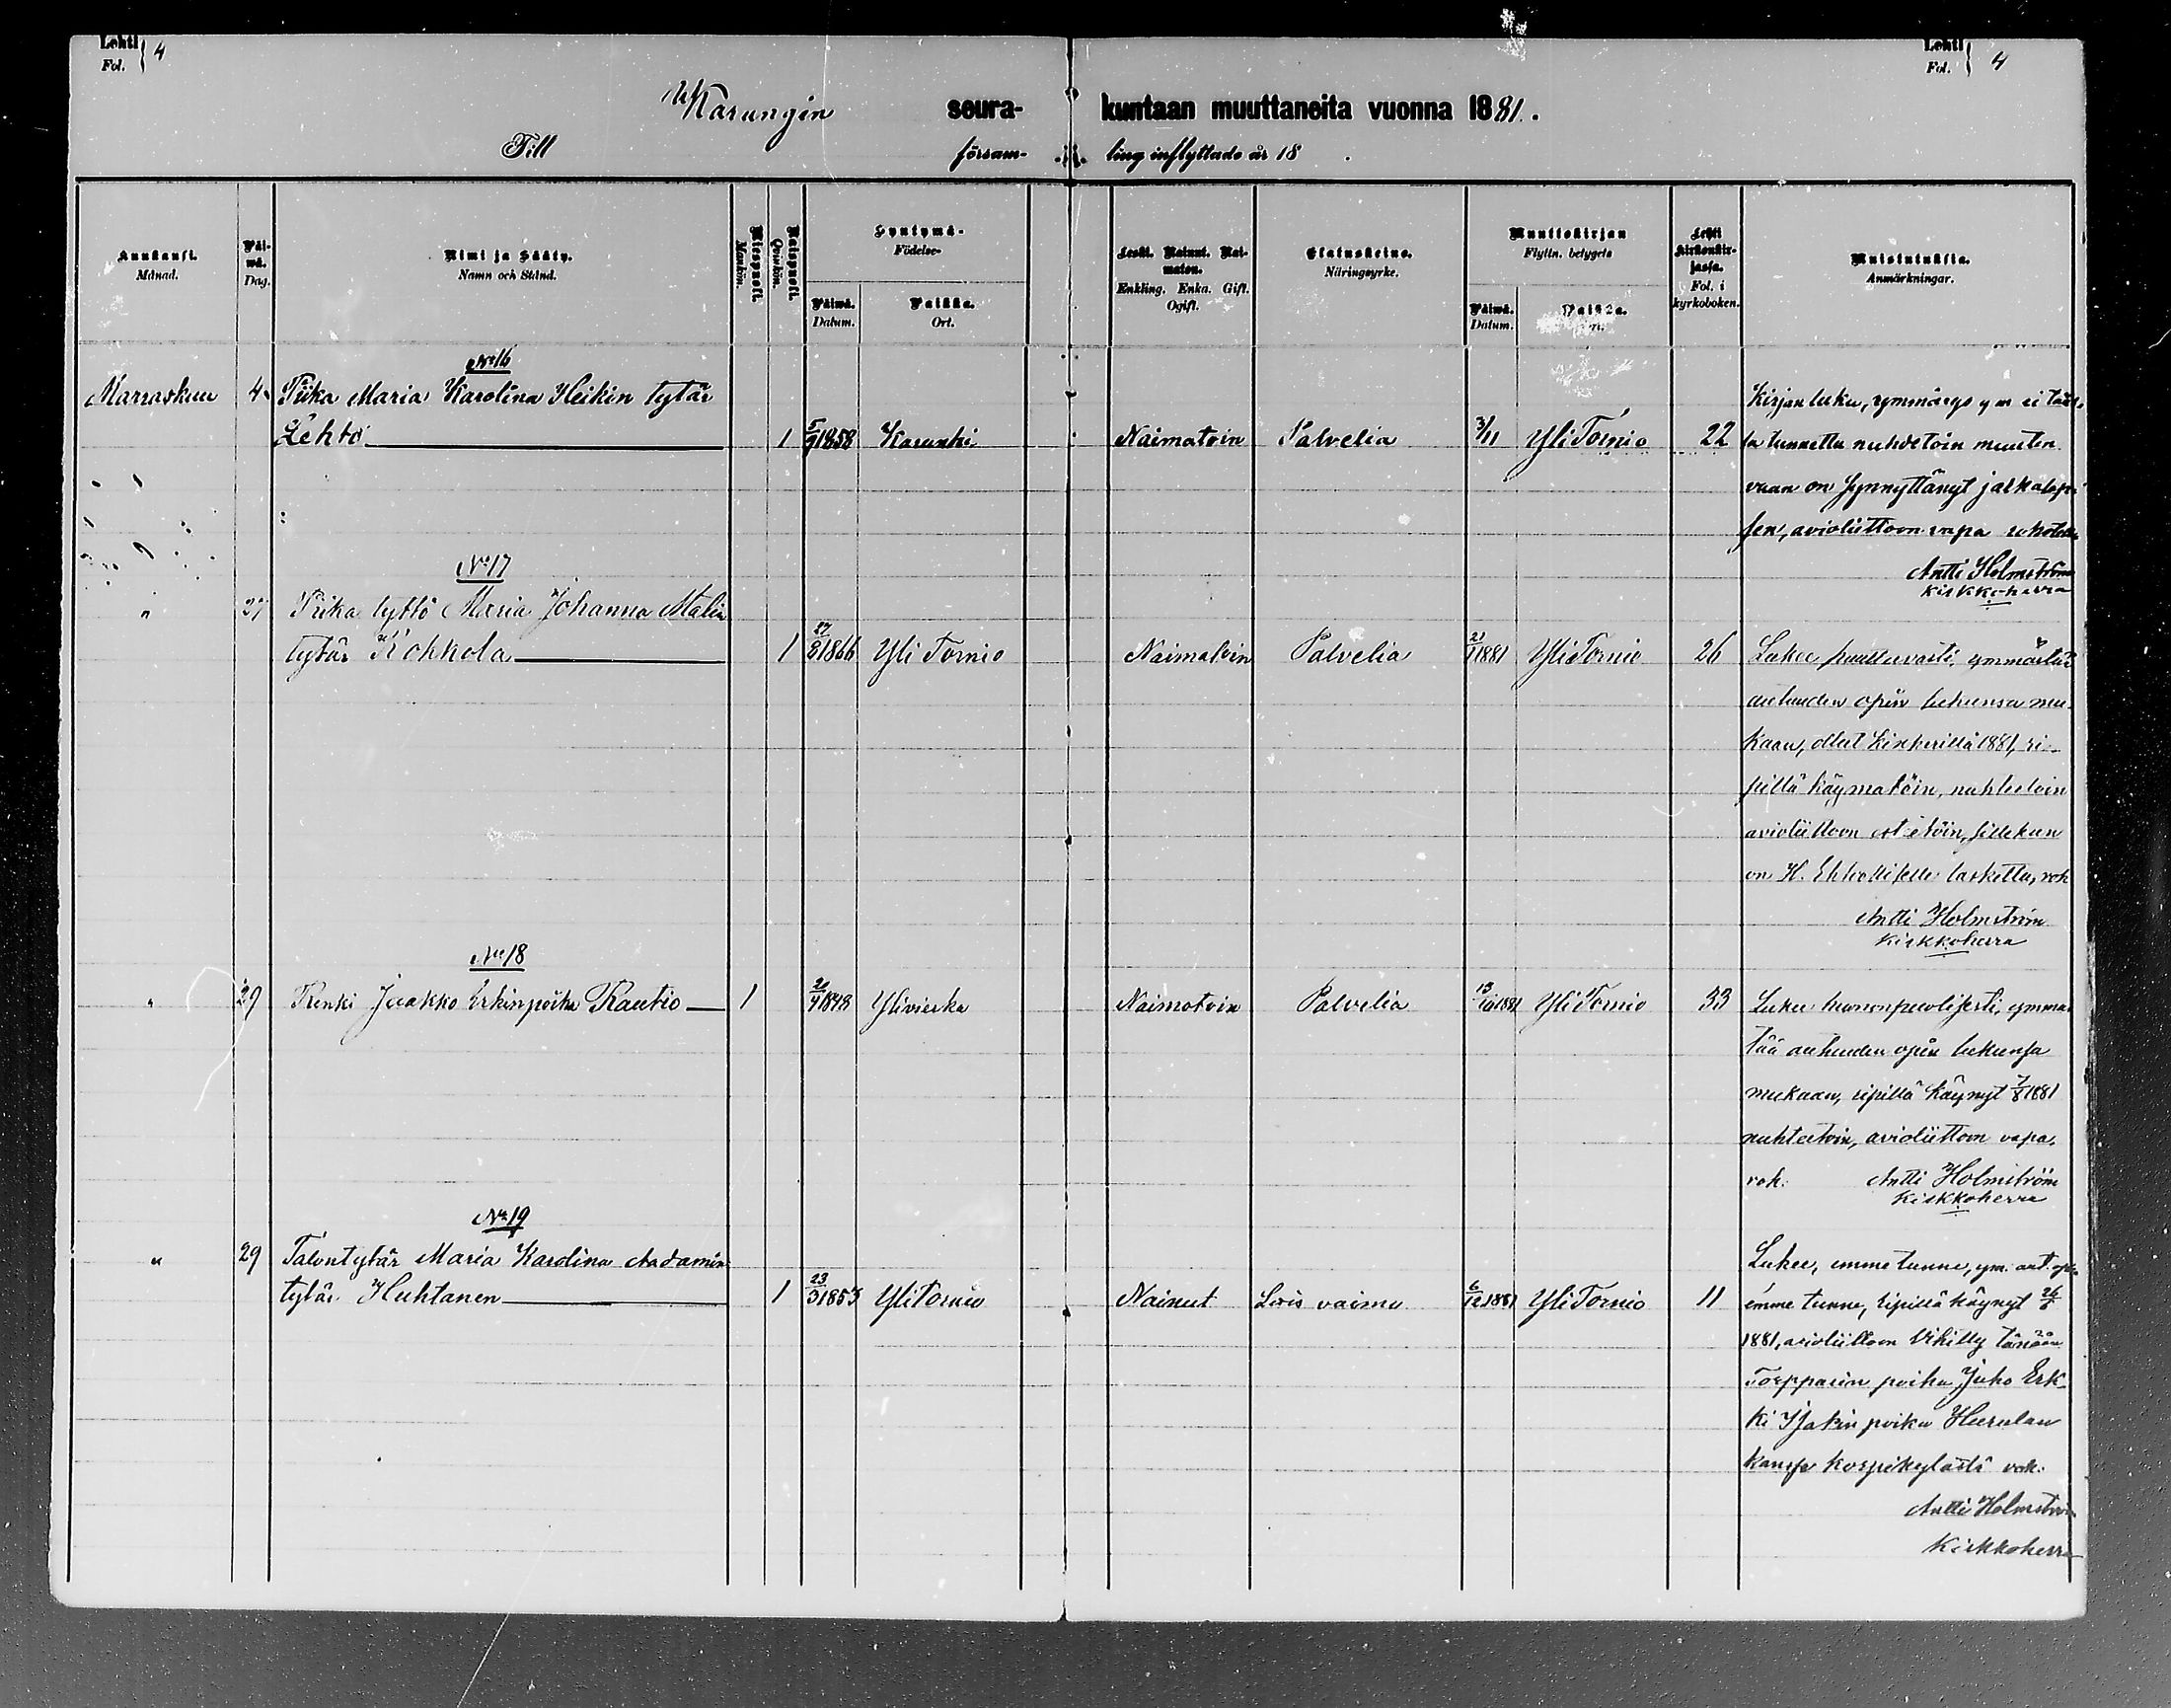 Lehti Fol. 4
Lehti Fol. 4
Karungin seura- kuntaan muuttaneita vuonna 1881.
Till försam- ling inflyttade år 18 .
Kuukausi. Månad.
Päi-wä. Dag.
Nimi ja Sääty. Namn och Stånd.
Miespuoli. Mankön.
Naispuoli. Qvinkön.
Syntymä- Födelse-
Päiwä. Datum.
Paikka. Ort.
Leski. Nainut. Nai-maton. Enkling. Enka. Gift. Ogift.
Elatuskeino. Näringsyrke.
Muuttokirjan Flyttn. betygets
Päiwä. Datum.
Paikka.
Lehti kirkonkir-jassa. Fol. i kyrkoboken.
Muistutuksia. Anmärkningar.
No 16
Marraskuu 4. Piika Maria Karolina Heikin tytär
Lehto 1 5/9 1858 Karunki Naimatoin Palvelia 3/11 Yli Tornio 22
Kirjan luku, ymmärys y m ei täälä
tunnettu nuhdetoin muuten
vaan on synnyttänyt jalkalap-
sen, avioliittoon vapa
Antti Holmström
Kirkkoherra
No 17
" 27 Piika tyttö Maria Johanna
tytär Kokkola 1 27/8 1866 Yli Tornio Naimatoin Palvelia 21/1 1881 Yli Tornio 26
Lukee puuttuvasti, ymmärtää
autuuden opin lukunsa mu-
kaan, ollut kinkerillä 1881, ri-
pillä käymatöin, nuhteetoin
avioliittoon estetöin, sillekun
on H. Ehtoolliselle laskettu, rok
Antti Holmström
Kirkkoherra
No 18
" 29 Renki Jaakko Erkinpoika Rautio 1 20/7 1848 Ylivieska Naimatoin Palvelia 13/10 1881 Yli Tornio 33
Lukee huononpuolisesti, ymmär-
tää autuuden opin lukunsa
mukaan, ripillä käynyt 7/8 1881
nuhteetoin, avioliittoon vapa,
rok: Antti Holmström
Kirkkoherra
No 19
" 29 Talontytär Maria Karolina Aadamin
tytär Huhtanen 1 23/3 1853 Yli Tornio Nainut Lois vaimo 6/12 1881 Yli Tornio 11
Lukee, emme tunne, ym. aut. op.
emme tunne, ripillä käynyt 26/5
1881, avioliittoon vihitty tänään
Torpparin poika Juho Erk-
ki Isakin poika
kanssa Korpikylästä rok:
Antti Holmström
Kirkkoherra